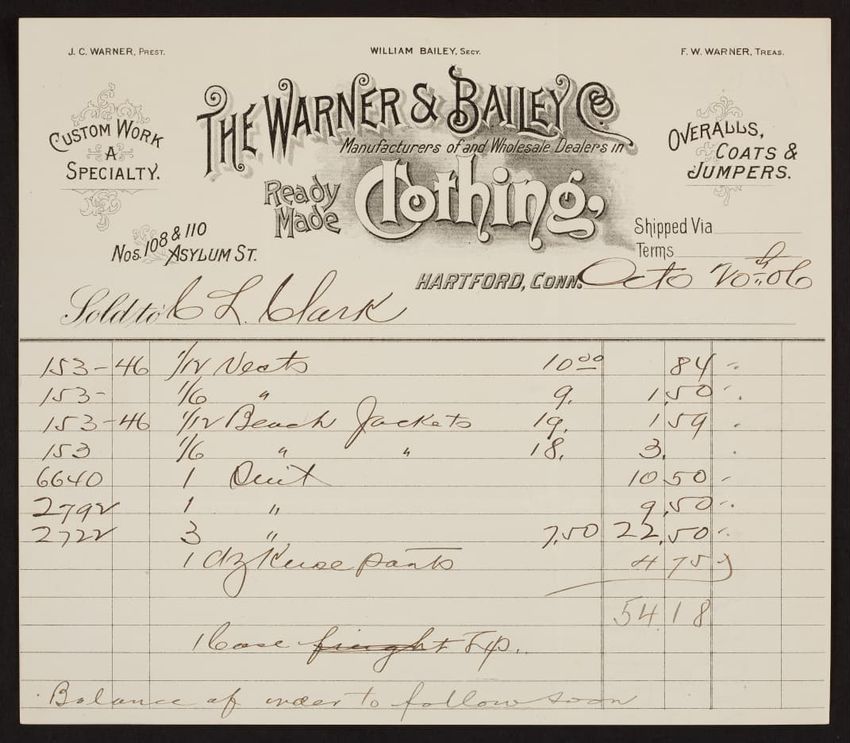 J. C. WARNER, PREST.
WILLIAM BAILEY, SECY.
F. W. WARNER, TREAS.
THE WARNER & BAILEY Co.
CUSTOM WORK
A
SPECIALTY.
Manufacturers of and Wholesale Dealers in
OVERALLS,
COATS &
JUMPERS.
Ready
Made
Clothing,
Nos. 108 & 110
ASYLUM ST.
Shipped Via
Terms
HARTFORD, CONN. Octo 20th 06
Sold to C L. Clark
153-46 1/12 Vests 10 00 84
153- 1/6 " 9. 1.50
153-46 1/12 Beach Jackets 19. 1 59
153 1/6 " " 18. 3.
6640 1 Suit 10 50
2792 1 " 9.50
2722 3 " 7.50 22.50
1 dz Knee pants 4 75
54 18
1 Case freight Exp..
Balance of order to follow soon